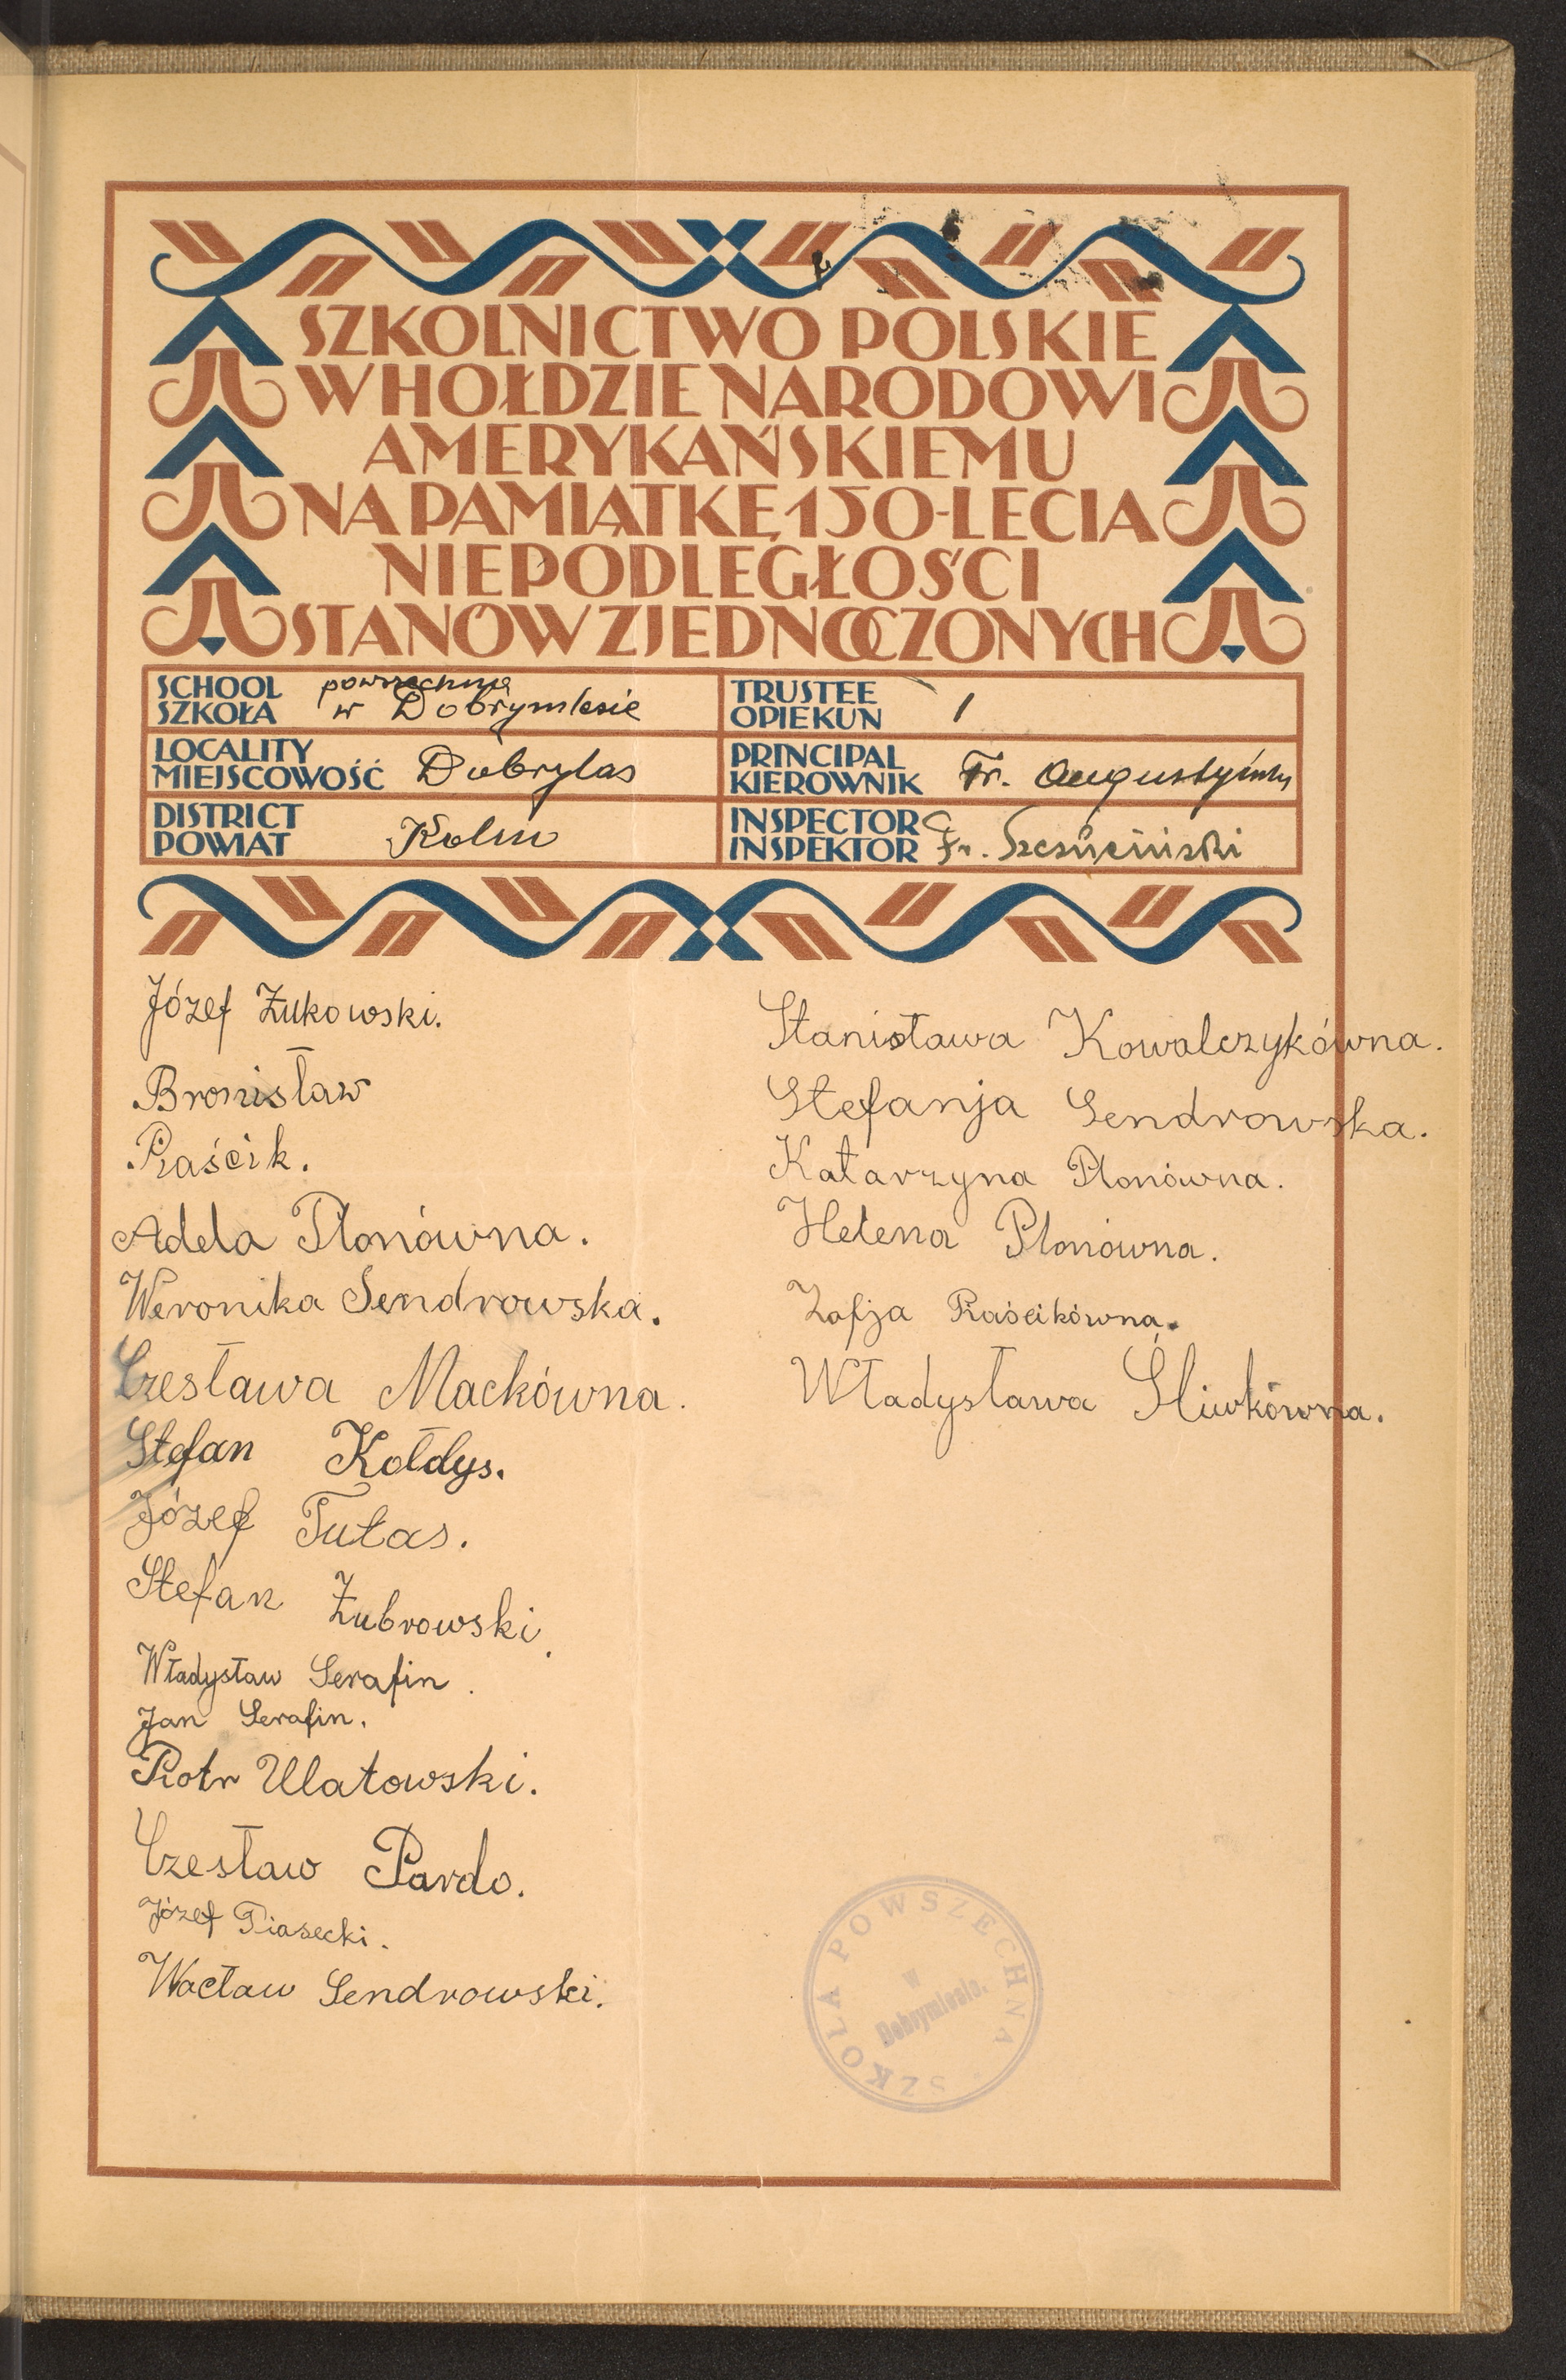 SZKOLNICTWO POLSKIE
W HOŁDZIE NARODOWI
AMERYKAŃSKIEMU
NA PAMIĄTKĘ 150-LECIA
NIEPODLEGŁOŚCI
STANÓW ZJEDNOCZONYCH
SCHOOL
SZKOŁA
powszechna
w Dobrymlesie
TRUSTEE
OPIEKUN
LOCALITY
MIEJSCOWOŚĆ Dobrylas
PRINCIPAL
KIEROWNIK Fr.
DISTRICT
POWIAT Kolno
INSPECTOR
INSPEKTOR Fr.
Józef Żukowski.
Bronisław
Piaścik.
Adela Płonówna.
Weronika Sendrowska.
Czesława Mackówna.
Stefan Kołdys.
Józef Tułas.
Stefan Żubrowski.
Władysław Serafin.
Jan Serafin.
Piotr Ulatowski.
Czesław Pardo.
Józef Piasecki.
Wacław Sendrowski.
Stanisława Kowalczykówna.
Stefanja Sendrowska.
Katarzyna Płonówna.
Helena Płonówna.
Zofja Piaścikówna.
Władysława Śliwkówna.
SZKOŁA POWSZECHNA
w
Dobrymlesie.